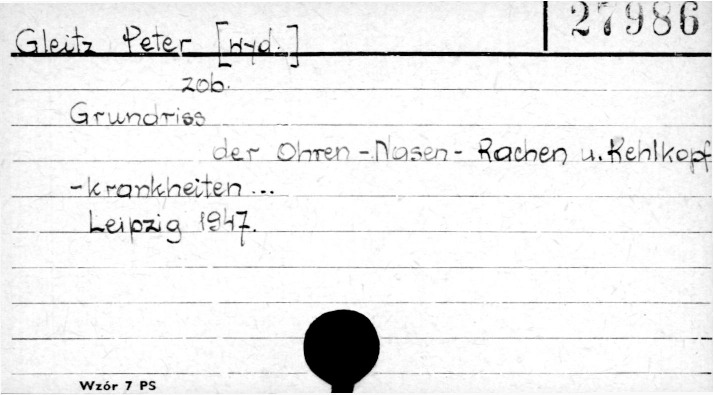 27986
Gleitz Peter [wyd.]
zob.
Grundriss
der Ohren-Nasen- Rachen u. Kehlkopf
-krankheiten...
Leipzig 1947.
Wzór 7 PS